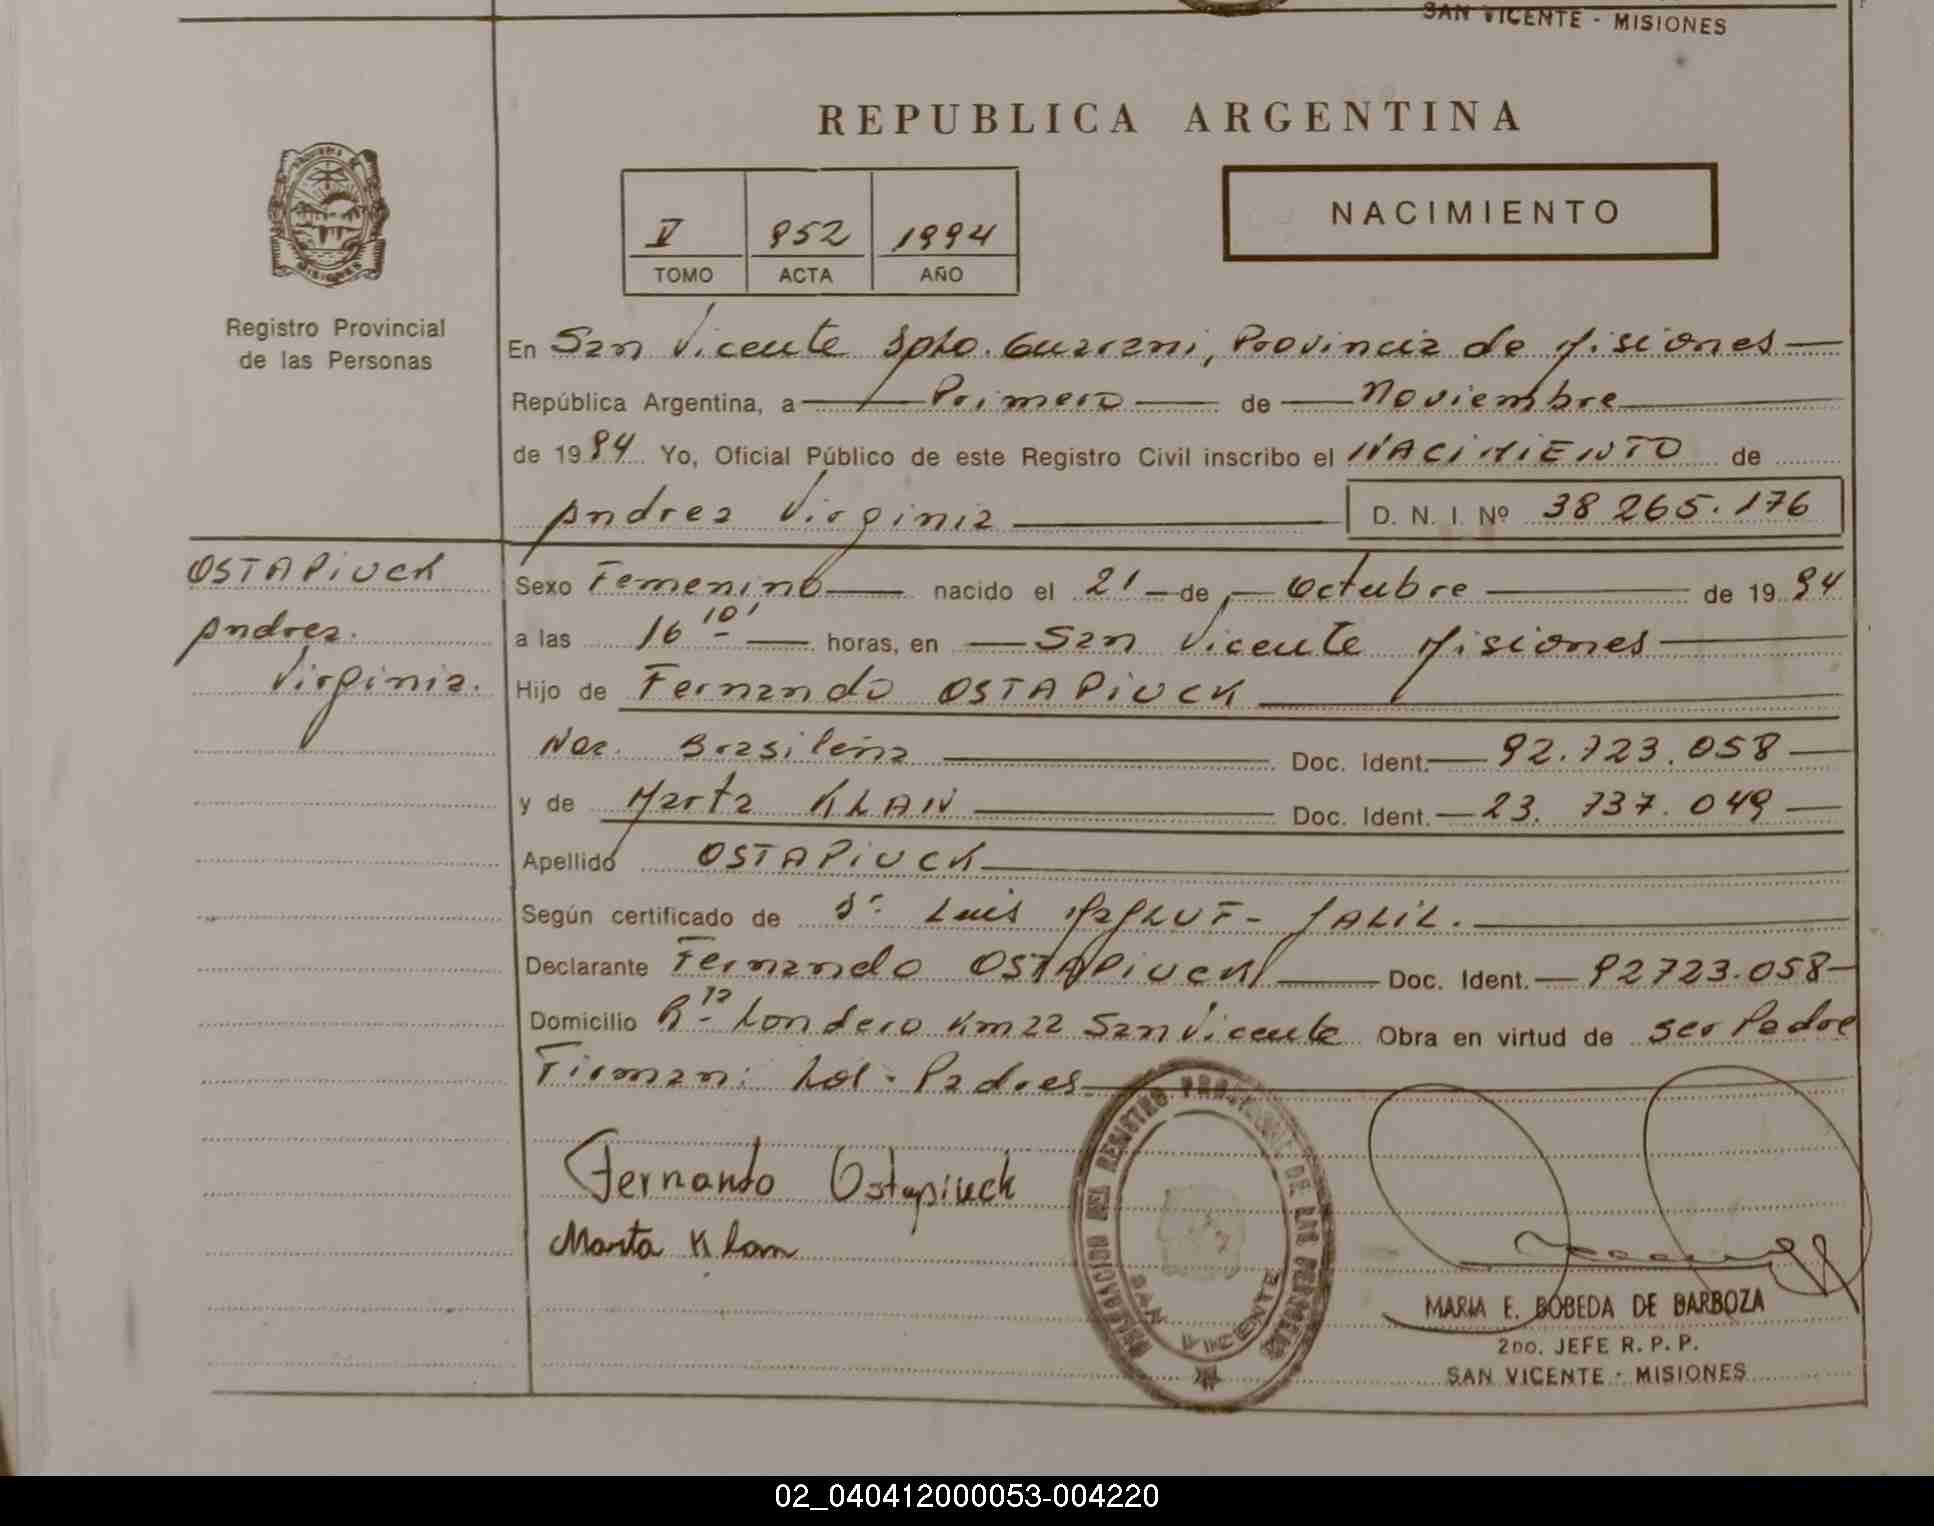 SAN VICENTE - MISIONES
REPUBLICA ARGENTINA
NACIMIENTO
V 952 1994
TOMO ACTA AÑO
Registro Provincial
de las Personas
MISIONES
En San Vicente Dpto. Guarani, Provincia de Misiones
República Argentina, a Primero de Noviembre
de 1994 Yo, Oficial Público de este Registro Civil inscribo el NACIMIENTO de
Andrea Virginia D. N. I. Nº 38 265.176
OSTAPIUCK
Andrea
Virginia.
Sexo Femenino nacido el 21 de Octubre de 1994
a las 16 10' horas, en San Vicente Misiones
Hijo de Fernando OSTAPIUCK
Nac. Brasileña Doc. Ident. 92.723.058
y de Marta KLAN Doc. Ident. 23. 737.049
Apellido OSTAPIUCK
Según certificado de Dr. Luis JALIL.
Declarante Fernando OSTAPIUCK Doc. Ident. 92723.058
Domicilio Londero Km 22 San Vicente Obra en virtud de ser Padre
Firman: Los Padres
Fernando Ostapiuck
Marta Klan
DELEGACION DEL REGISTRO PROVINCIAL DE LAS PERSONAS
SAN VICENTE
MARIA E. BOBEDA DE BARBOZA
2DO. JEFE R. P. P.
SAN VICENTE - MISIONES
02_040412000053-004220